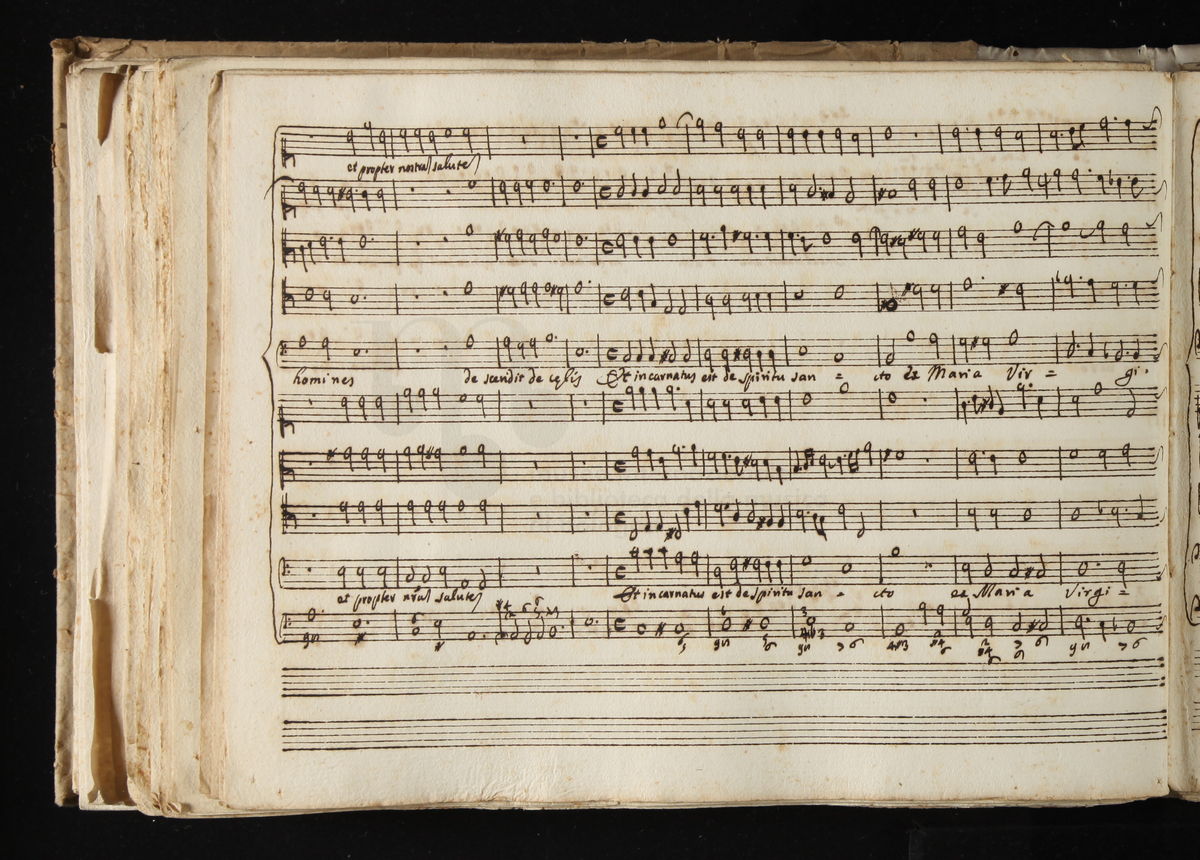 et propter nostrā salutē
homines de scendit de cęlis Et incarnatus est de spiritu san = cto ex Maria Vir = gi.
et propter nrā salutē Et incarnatus est de spiritu san = cto ex Maria Virgi =